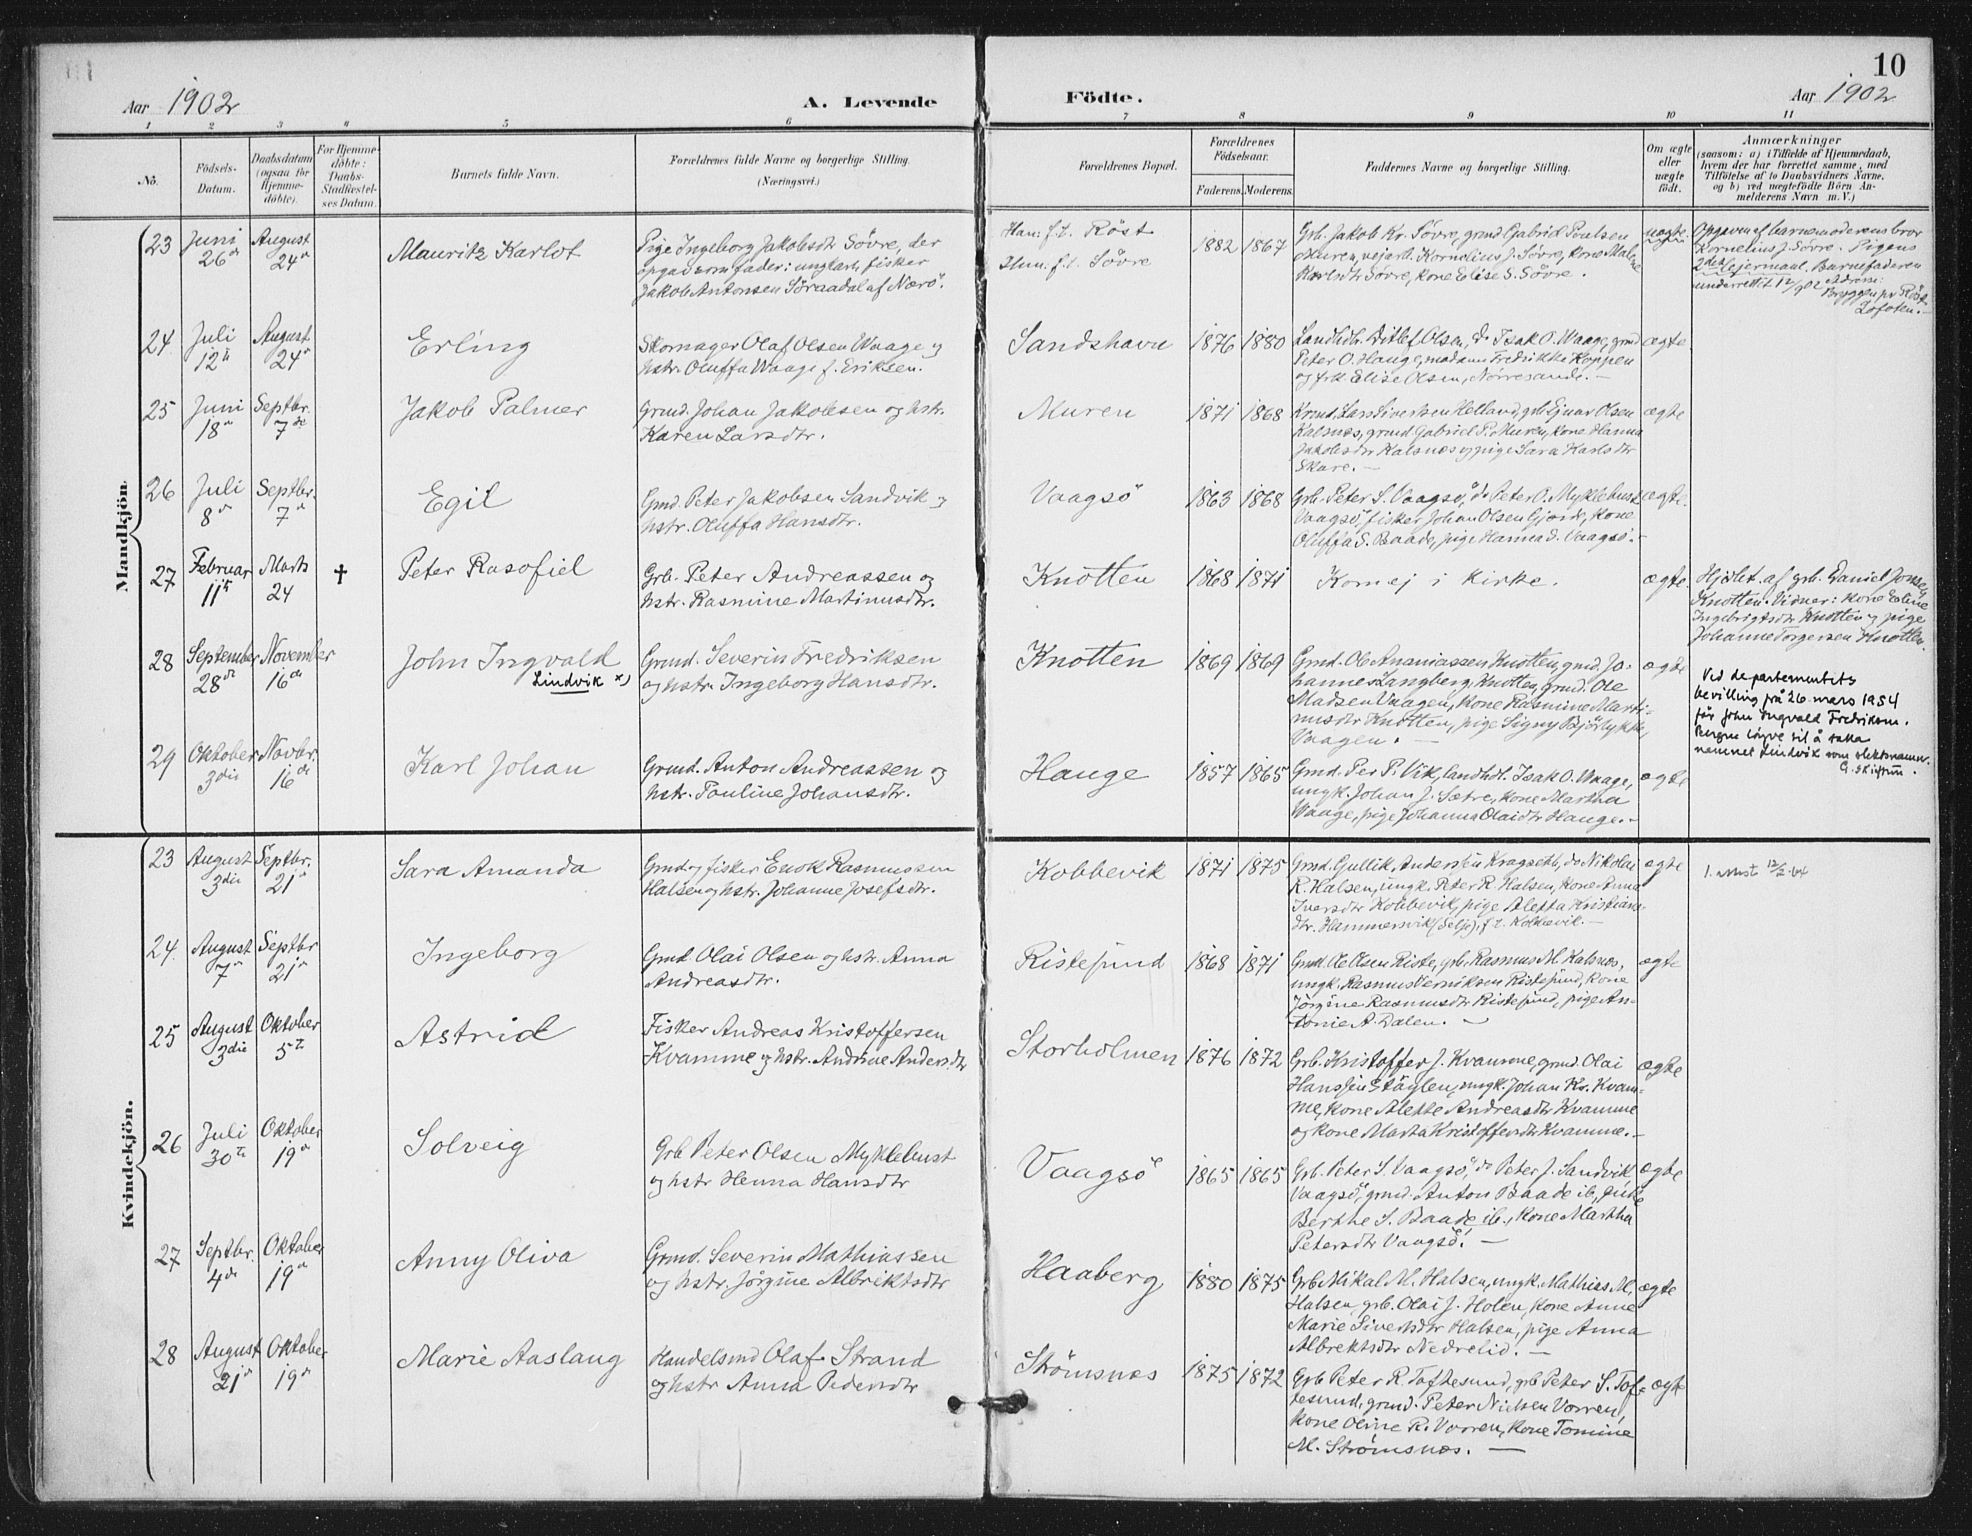 10
Aar 1902
A. Levende
Födte.
Aar 1902
1 2 3 4 5 6 7 8 9 10 11
No.
Födsels-
Datum.
Daabsdatum
(ogsaa for
Hjemme-
döbte).
For Hjemme-
döbte:
Daabs-
Stadfæstel-
ses Datum.
Barnets fulde Navn.
Forældrenes fulde Navne og borgerlige Stilling.
(Næringsvei.)
Forældrenes Bopæl.
Forældrenes
Födselsaar.
Faderens. Moderens.
Faddernes Navne og borgerlige Stilling.
Om ægte
eller
uægte
födt.
Anmærkninger
(saasom: a) i Tilfælde af Hjemmedaab,
hvem der har forrettet samme, med
Tilföielse af to Daabsvidners Navne,
og b) ved uægtefödte Börn An-
melderens Navn m. V.)
Mandkjön.
23 Juni 26de August 24de
Mauritz Karlot
Pige Ingeborg Jakobsdtr Sövre, der
opgai som fader: ungkarl, fisker
Jakob Antonsen Söraadal af Nærö.
Han: f.t. Röst
Hun. f.t. Sövre
1882 1867
Grb. Jakob Kr. Sövre, grmd Gabriel Paulsen
Muren, vejarb. Kornelius J. Sövre, kone Malene
Karlsdtr Sövre, kone Elise S. Sövre.
uægte
Opgaven af barnemoderens bror
Kornelius J. Sövre. Pigens
2det lejermaal. Barnefaderen
underrettet 12/9 02 Adresse:
Bryggen pr Röst
Lofoten.-
24 Juli 12te August 24de
Erling
Skomager Olaf Olsen Waage og
hstr. Oluffa Waage f. Eriksen.
Sandshavn
1876 1880
Landhdl. Ditlef Olsen, do Isak O. Waage, grmd
Peter O. Hauge, madam Fredrikke Koppen
og frk. Elise Olsen, Nörresande.-
ægte
25 Juni 18de Septbr. 7de
Jakob Palmer
Grmd. Johan Jakobsen og hstr.
Karen Larsdtr.
Muren
1871 1868
Grmd. Lars Sivertsen Helland, grb Ejnar Olsen
Kalsnæs, grmd Gabriel P. Muren, kone Hanna
Jakobsdtr Kalsnæs og pige Sara Karlsdtr
Skare.-
ægte
26 Juli 8de Septbr. 7de
Egil
Grmd Peter Jakobsen Sandvik og
hstr. Oluffa Hansdtr.
Vaagsö
1863 1868
Grb. Peter S. Vaagsö, do Peter O. Myklebust
Vaagsö, fisker Johan Olsen Gjerde, kone
Oluffa S. Baade, pige Hanna S. Vaagsö.-
ægte.
27 Februar 11te Marts 24 †
Peter Rasofiel
Grb. Peter Andreassen og
hstr. Rasmine Martinusdtr.
Knotten
1868 1871
Kom ej i kirke.
ægte
Hjdbt. af grb. Daniel Jonsen
Knotten. Vidner: kone Eline
Ingebrigtsdtr Knotten og pige
Johanne Torgersen Knotten.
28 September 28de November 16de
John Ingvald
Lindvik x)
Grmd. Severin Fredriksen
og hstr. Ingeborg Hansdtr.
Knotten
1869 1869
Grmd. Ole Ananiassen Knotten, grmd. Jo-
hannes Langberg, Knotten, grmd. Ole
Madsen Vaagen, kone Rasmine Marti-
nusdtr Knotten, pige Signy Björlykke,
Vaagen.-
ægte
Ved departementets
bevilling på 26. mars 1954
får John Ingvald Fredriksen.
Bergen löyve til å taka
namnet Lindvik som slektsnamn.
29 Oktober 3die Novbr. 16de
Karl Johan
Grmd. Anton Andreassen og
hstr. Pauline Johansdtr.
Hauge
1857 1865
Grmd. Per P. Vik, landhdl. Isak O. Waage,
ungk. Johan J. Sætre, kone Martha
Waage, pige Johanna Olaidtr Hauge.-
ægte
Kvindekjön.
23 August 3die Septbr. 21de
Sara Amanda
Grmd og fisker Enok Rasmussen
Halsen og hstr. Johanne Josefsdr.
Kobbevik
1871 1875
Grmd. Gullik Andersen Kragseth, do Nikolai
R. Halsen, ungk. Peter R. Halsen, kone Anna
Iversdtr Kobbevik, pige Aletta Kristians-
dtr. Hammersvik (Seljo), f.t. Kobbevik.-
ægte
1. attest 12/2-64
24. August 7de Septbr 21de
Ingeborg
Grmd Olai Olsen og hstr. Anna
Andreasdtr.
Ristesund
1868 1871
Grmd. Ole Olsen Riste, grb. Rasmus M. Kalsnæs,
ungk. Rasmus Henriksen Ristesund, kone
Jörgine Rasmusdtr Ristesund, pige An-
tonie A. Dalen.-
ægte
25 August 3die Oktober 5te
Astrid
Fisker Andreas Kristoffersen
Kvamme og hstr. Andrine Andersdtr
Storholmen
1876 1872
Grb. Kristoffer J. Kvamme, grmd. Olai
Hanssen Stöylen, ungk. Johan Kr. Kvam-
me, kone Alette Andreasdtr Kvamme
og kone Marta Kristoffersdtr Kvamme.-
ægte
26 Juli 30te Oktober 19de
Solveig
Grb Peter Olsen Myklebust
og hstr Henna Hansdtr
Vaagsö
1865 1865
Grb. Peter S. Vaagsö, do Peter J. Sandvik
Vaagsö, grmd. Anton Baade ib., pike
Berthe S. Baade ib., kone Martha
Petersdtr Vaagsö.-
ægte
27 Septbr. 4de Oktober 19de
Anny Oliva
Grmd. Severin Mathiassen
og hstr. Jörgine Albriktsdtr
Haaberg
1880 1875
Grb. Mikal M. Halsen, ungk. Mathias M.
Halsen, grb. Olai J. Holen, kone Anne
Marie Sivertsdtr Halsen, pige Anna
Albrektsdtr Nedrelid.-
ægte
28 August 21de Oktober 19de
Marie Aaslaug
Handelsmd Olaf Strand
og hstr Anna Pedersdtr
Strømsnes
1875 1872
Grb Peter R. Toftesund, grb Peter S. Tof-
tesund, grmd. Peter Nielsen Vorren,
kone Oline R. Vorren, kone Tomine
M. Strømsnæs.-
ægte